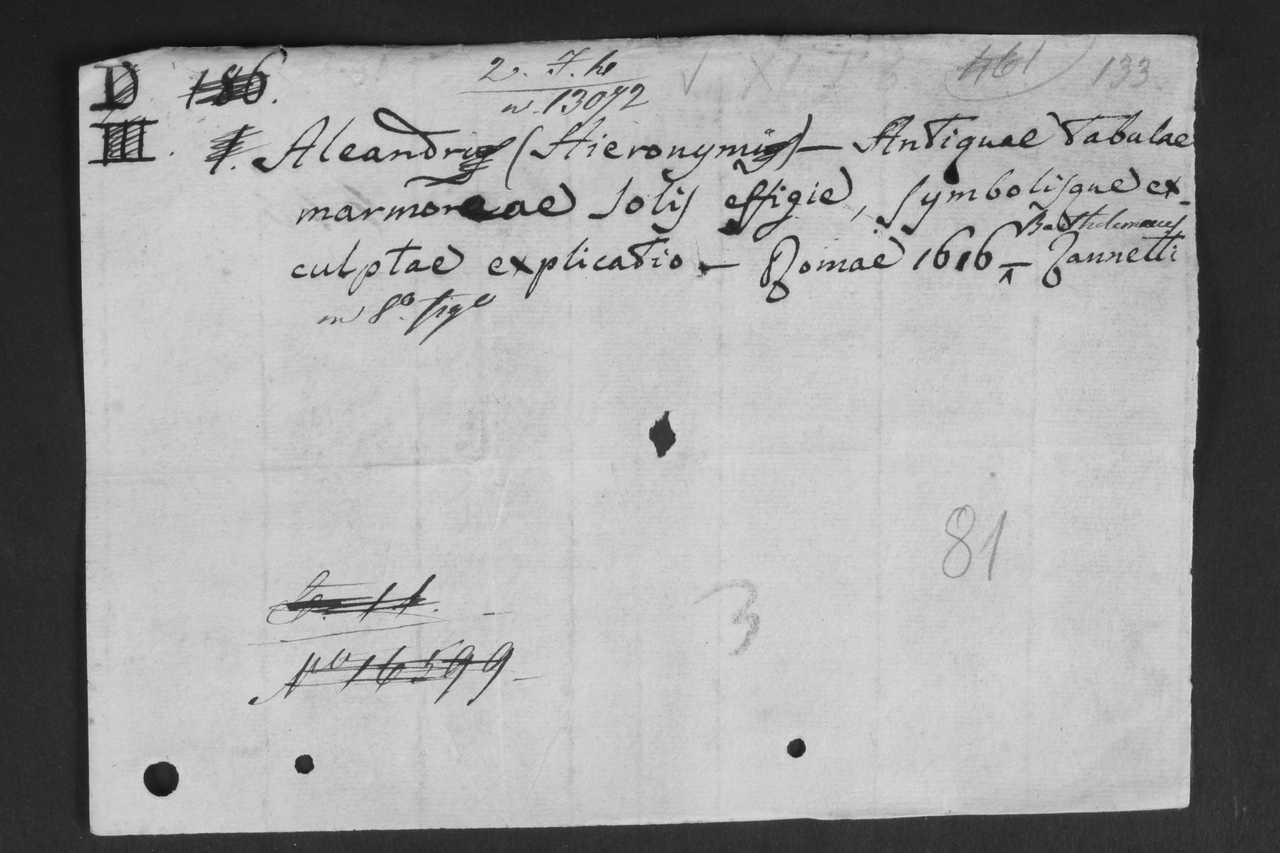 D 186. 133
III. Aleandri (Hieronymi) — Antiquae tabulae
marmoreae solis effigie, symbolisque ex-
culptae explicatio — Romae 1616 — Bartholomaeus Zannetti
in 8.º fig.
81
3
Nº 16599